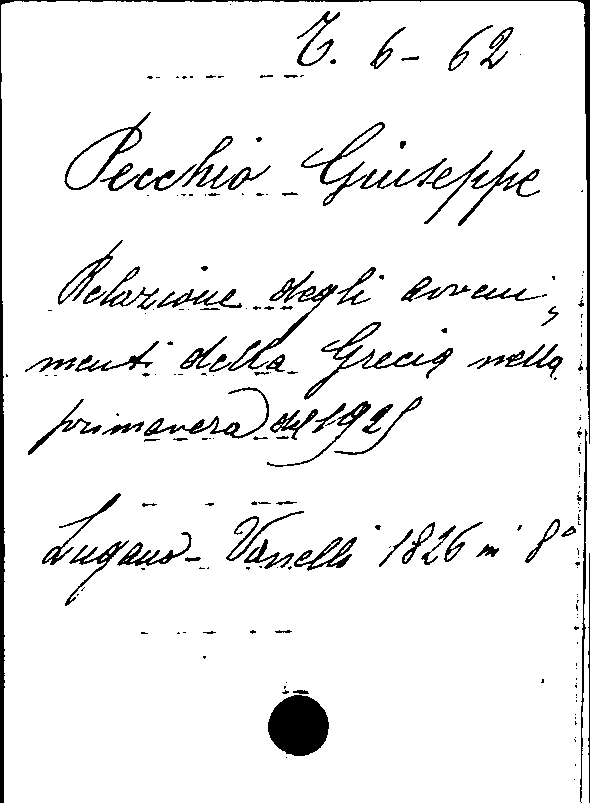 T. 6 - 62
Pecchio Giuseppe
Relazione degli avveni,
menti della Grecia nella
primavera del 1925
Lugano - Vanelli 1826 in 8°